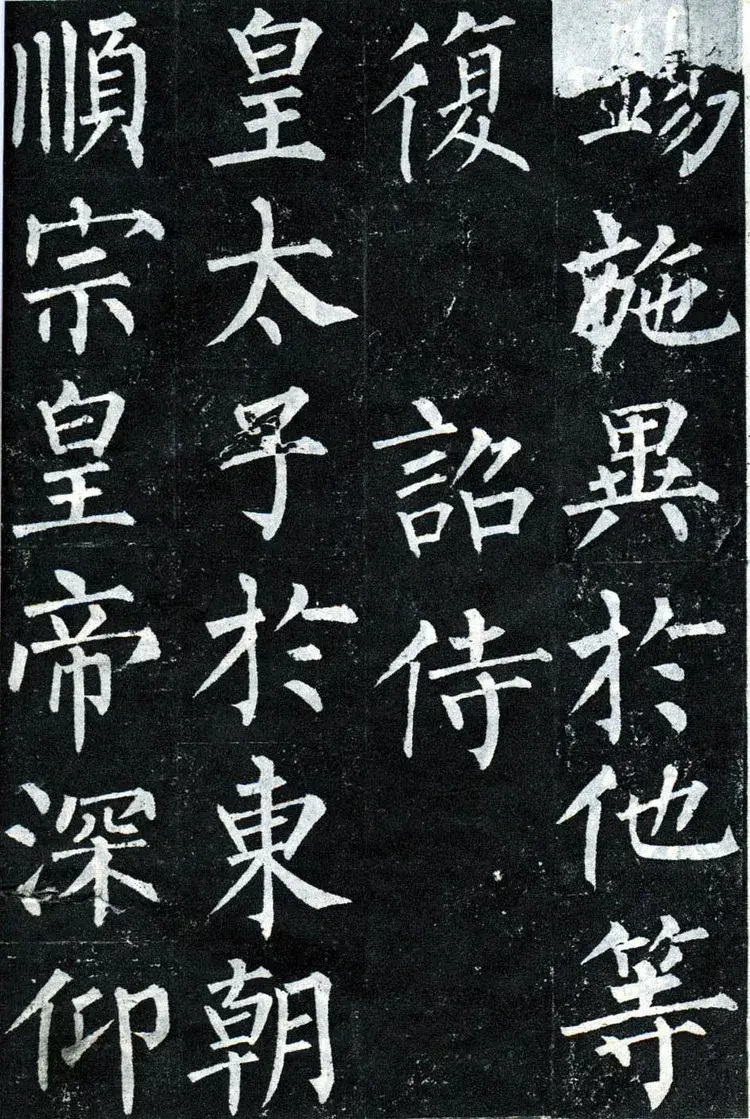 錫施異於他等
復 詔侍
皇太子於東朝
順宗皇帝深仰